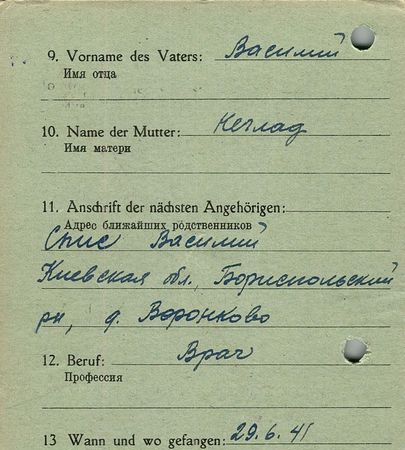 9. Vorname des Vaters: Василий
Имя отца
10. Name der Mutter: Неглад
Имя матери
11. Anschrift der nächsten Angehörigen:
Адрес ближайших родственников
Спис Василий
Киевская обл., Бориспольский
рн, д. Воронково
12. Beruf: Врач
Профессия
13 Wann und wo gefangen: 29.6.41